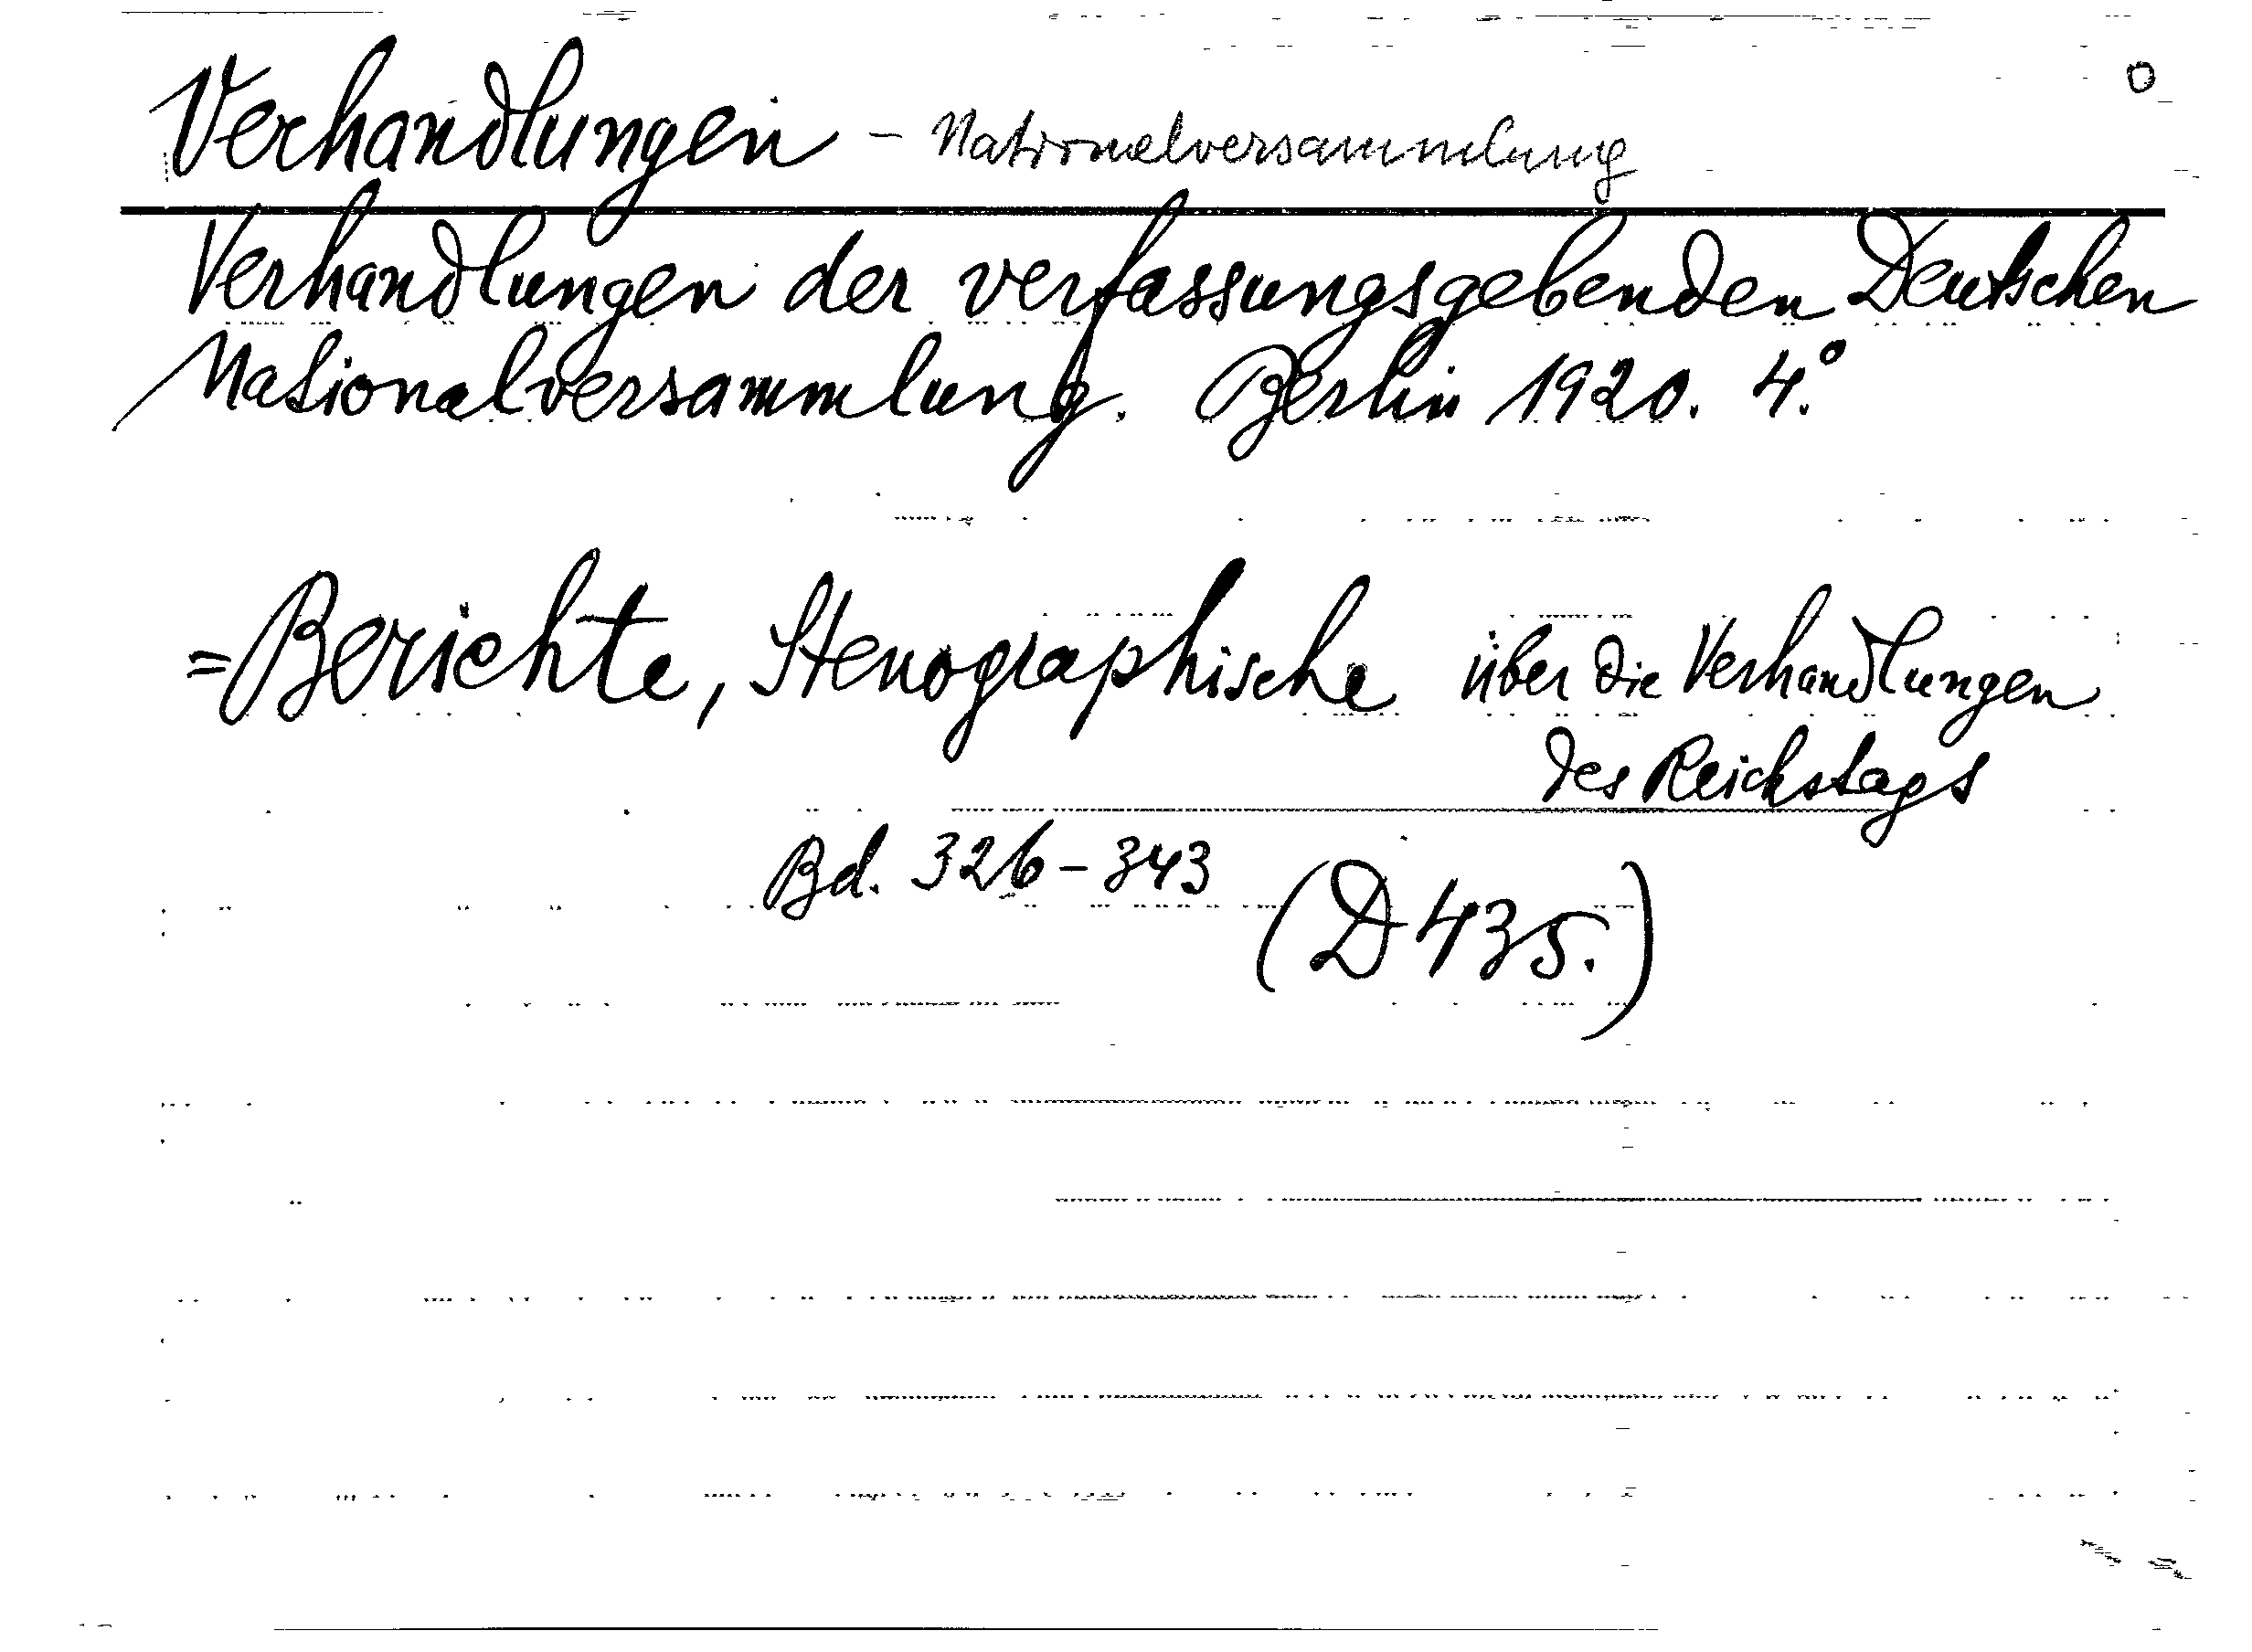 Verhandlungen - Nationalversammlung
Verhandlungen der verfassungsgebenden Deutschen
Nationalversammlung. Berlin 1920. 4.°
=Berichte, Stenographische über die Verhandlungen
des Reichstags
Bd. 326-343
(D 435.)